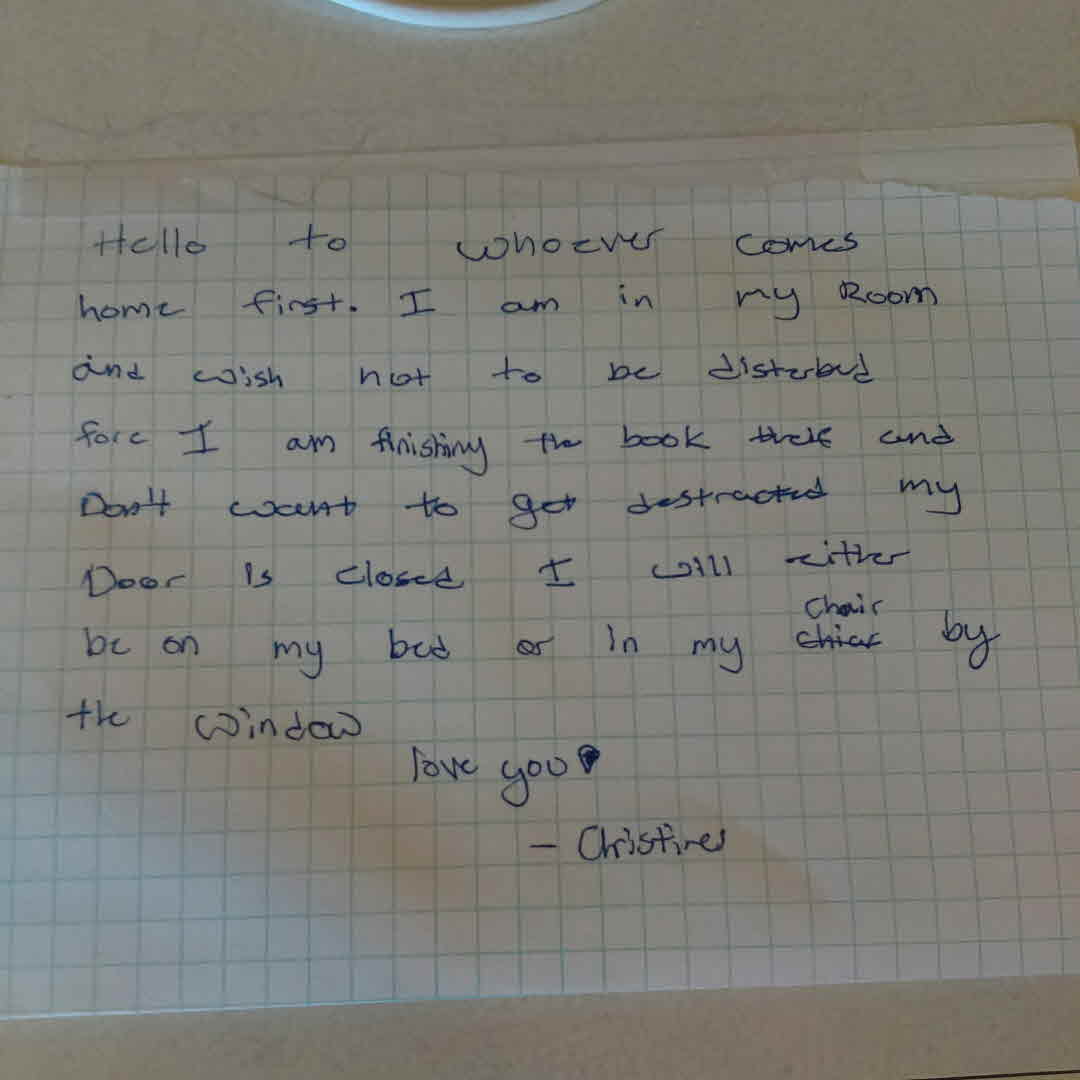 Hello to whoever comes
home first. I am in my Room
and wish not to be disterbed
fore I am finishing the book and
Don't want to get destracted my
Door is closed I will either
be on my bed or in my chair by
the window
love you
- Christines